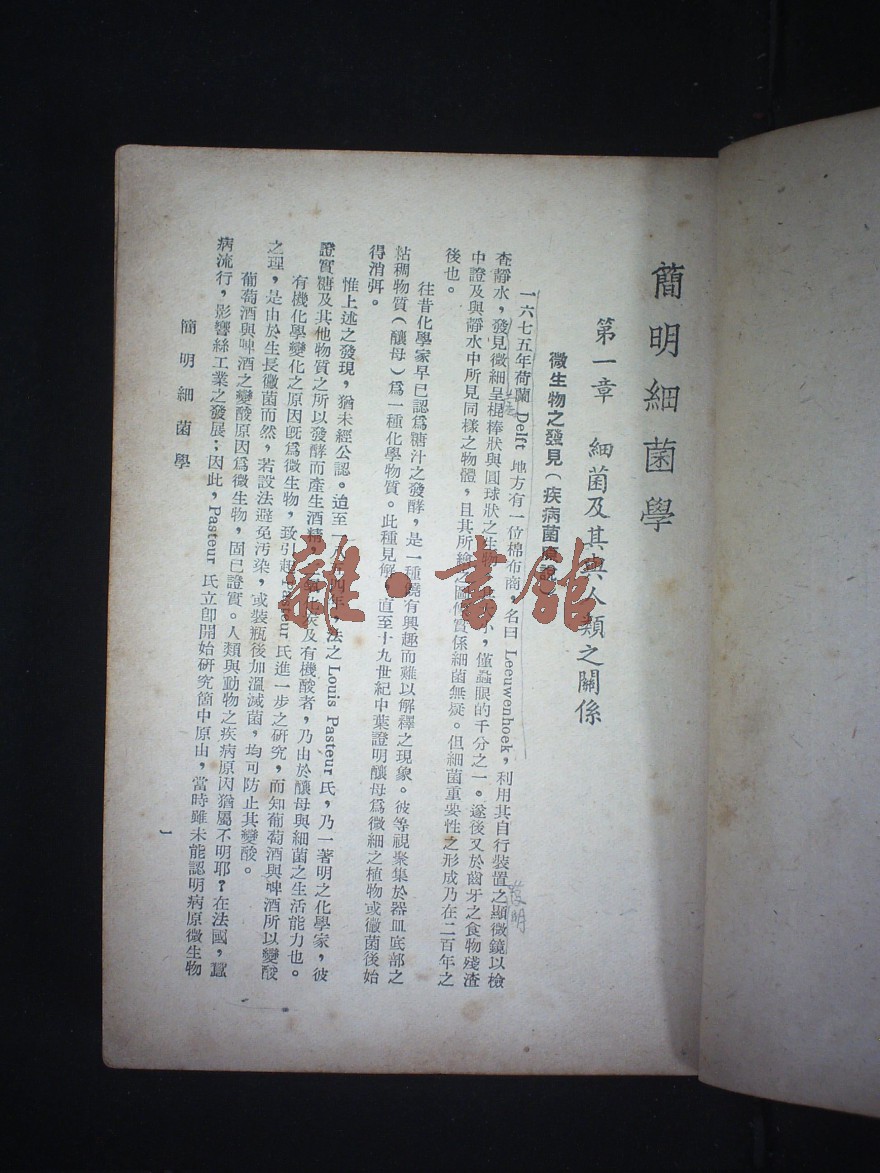 簡明細菌學
第一章 細菌及其與人類之關係
微生物之發見(疾病菌原說
一六七五年荷蘭 Delft 地方有一位棉布商,名曰 Leeuwenhoek,利用其自行裝置之顯微鏡以檢
查靜水,發見微細呈棍棒狀與圓球狀之生物 小,僅蝨眼的千分之一。遂後又於齒牙之食物殘渣
中證及與靜水中所見同樣之物體,且其所繪之圖 實係細菌無疑。但細菌重要性之形成乃在二百年之
後也。
往昔化學家早已認爲糖汁之發酵,是一種饒有興趣而難以解釋之現象。彼等視聚集於器皿底部之
粘稠物質(釀母)爲一種化學物質。此種見解 直至十九世紀中葉證明釀母爲微細之植物或黴菌後始
得消弭。
惟上述之發現,猶未經公認。迨至 四年 法之 Louis Pasteur 氏,乃一著明之化學家,彼
證實糖及其他物質之所以發酵而產生酒精, 及有機酸者,乃由於釀母與細菌之生活能力也。
有機化學變化之原因旣爲微生物,致引起 Pasteur 氏進一步之研究,而知葡萄酒與啤酒所以變酸
之理,是由於生長黴菌而然,若設法避免污染,或裝瓶後加溫滅菌,均可防止其變酸。
葡萄酒與啤酒之變酸原因爲微生物,固已證實。人類與動物之疾病原因猶屬不明耶?在法國,蠶
病流行,影響絲工業之發展;因此,Pasteur 氏立卽開始研究箇中原由,當時雖未能認明病原微生物
簡明細菌學
1
發明
雜·書館